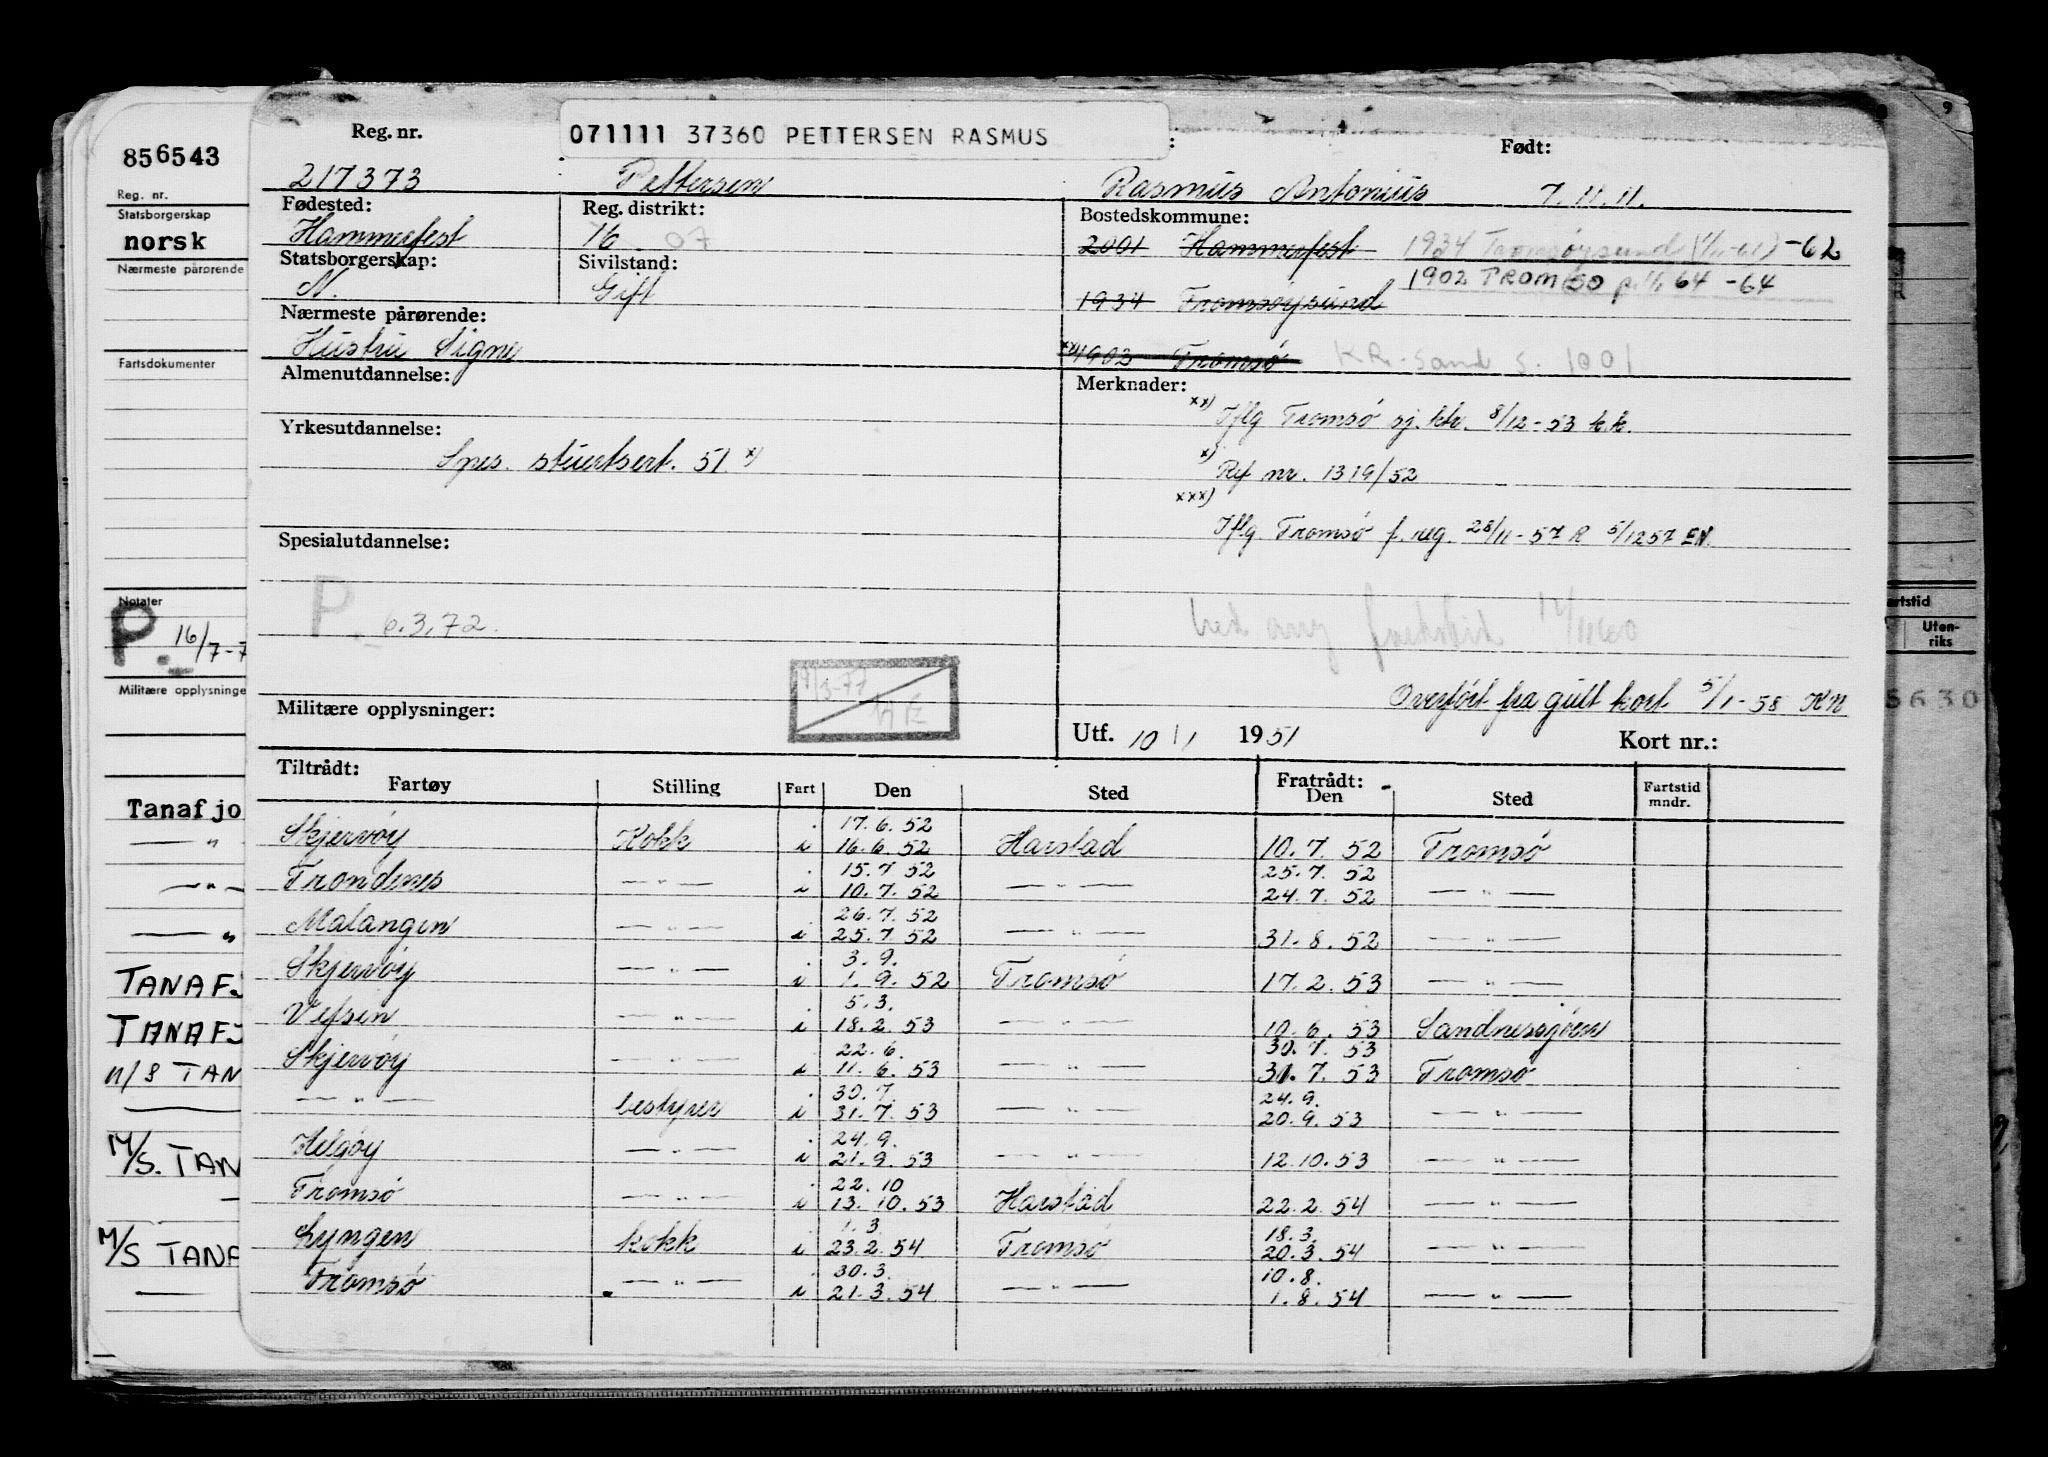 856543
Reg. nr.
Statsborgerskap
norsk
Nærmeste pårørende
Fartsdokumenter
Notater
P. 16/7-7
Militære opplysninge
Tanafjo
— " 
— " —
— "
TANAFJ
TANAFJ
M/S TAN
M/S. TAN
M/S TANA
Reg. nr.
071111 37360 PETTERSEN RASMUS
:
Født:
217373 Pettersen Rasmus Antonius 7.11.11.
Fødested: Reg. distrikt: Bostedskommune:
Hammerfest 16 07 2001 Hammerfest 1934 Tromsøysund -62
Statsborgerskap: Sivilstand: 1902 TROMSØ 64 -64
N. Gift 1934 Tromsøysund
Nærmeste pårørende:
Hustru Signe 1902 Tromsø KR.sand S. 1001
Almenutdannelse: Merknader:
xx) Iflg Tromsø sj. ktr. 8/12-53 k.k.
Yrkesutdannelse:
Spes. stuertsert. 51 x) x) Ref nr. 1319/52
xxx) Iflg. Tromsø f. reg. 28/11-57 R 5/1257 EN.
Spesialutdannelse:
P. 6.3.72.
Overført fra gult kort 5/1-58 KN
Militære opplysninger:
Utf. 10/1 1951 Kort nr.:
Tiltrådt: Fratrådt:
Fartøy Stilling Fart Den Sted Den Sted Fartstid mndr.
17.6.52
Skjervøy Kokk i 16.6.52 Harstad 10.7.52 Tromsø
15.7 52 25.7.52
Trondenes — " — i 10.7.52 — " — 24.7.52 — " —
26.7.52
Malangen — " — i 25.7 52 — " — 31.8.52 — " —
3.9.
Skjervøy — " — i 1.9.52 Tromsø 17.2.53 — " —
5.3.
Vefsen — " — i 18.2.53 — " — 10.6.53 Sandnessjøen
22.6. 30.7.53
Skjervøy — " — i 11.6.53 — " — 31.7.53 Tromsø
30.7. 24.9.
— " — bestyrer i 31.7.53 — " — 20.9.53 — " —
24.9.
Helgøy — " — i 21.9.53 — " — 12.10.53 — " —
22.10
Tromsø — " — i 13.10.53 Harstad 22.2.54 — " —
1.3 18.3.
Lyngen kokk i 23.2.54 Tromsø 20.3.54 — " —
30.3. 10.8.
Tromsø — " — i 21.3.54 — " — 1.8.54 — " —
9
artstid
Uten-
riks
5630